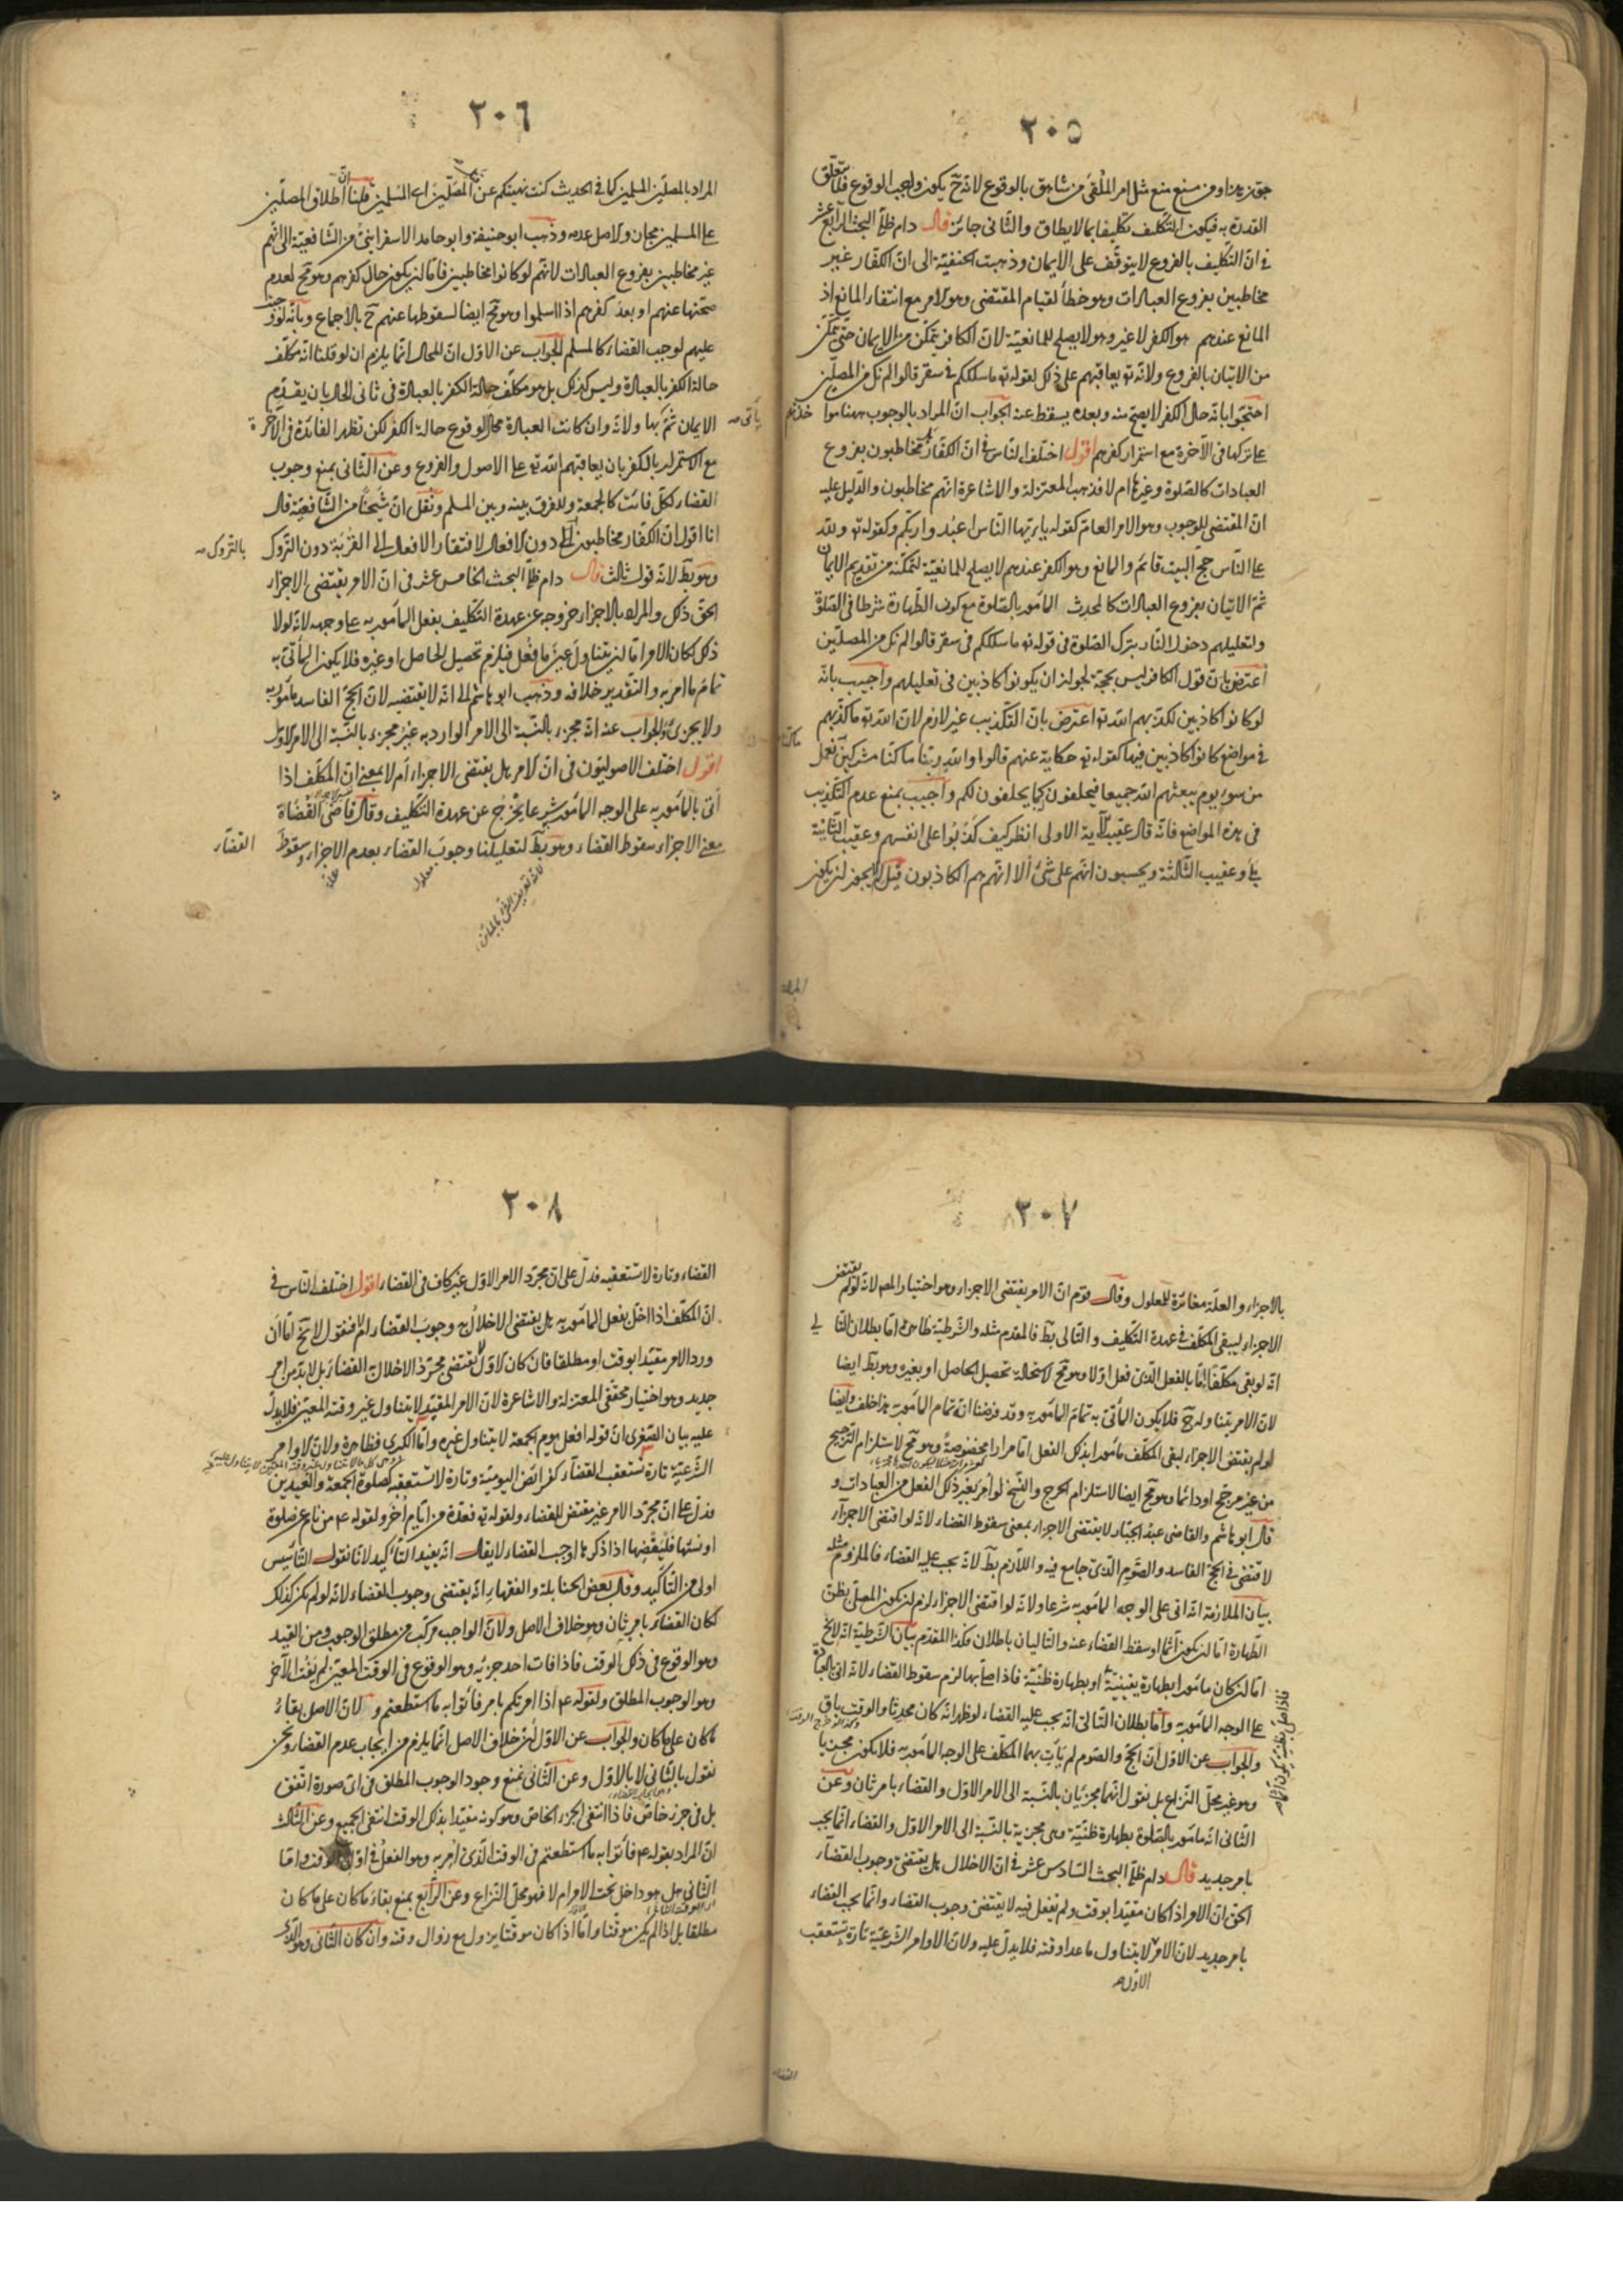 ٢٠٥
جوّز هذا ومن منع منع مثل امر الملقى من شاهق بالوقوع لانه ح يكون واجب الوقوع فلا يتعلق
القدرة به فيكون التكليف تكليفا بما لا يطاق والثانى جائز قال دام ظله البحث الرابع عشر
فى ان التكليف بالفروع لا يتوقف على الايمان وذهبت الحنفية الى ان الكفار غير
مخاطبين بفروع العبادات وهو خطأ لقيام المقتضى وهو الامر مع انتفاء المانع اذ
المانع عندهم هو الكفر لا غير وهو لا يصلح للمانعية لان الكافر يتمكن من الايمان حتى يتمكن
من الاتيان بالفروع ولانه تع يعاقبهم على ذلك لقوله تع ما سلككم فى سقر قالوا لم نك من المصلين
احتجوا بانه حال الكفر لا يصح منه وبعده يسقط عنه الجواب ان المراد بالوجوب ههنا
على تركها فى الآخرة مع استمرار كفرهم اقول اختلف الناس فى ان الكفار مخاطبون بفروع
العبادات كالصلوة وغيرها ام لا فذهب المعتزلة والاشاعرة انهم مخاطبون والدليل عليه
ان المقتضى للوجوب وهو الامر العام كقوله يا ايها الناس اعبدوا ربكم وكقوله تع ولله
على الناس حج البيت قائم والمانع وهو الكفر عندهم لا يصلح للمانعية لتمكنه من تقديم الايمان
ثم الاتيان بفروع العبادات كالمحدث المأمور بالصلوة مع كون الطهارة شرطا فى الصلوة
ولتعليلهم دخول النار بترك الصلوة فى قوله تع ما سلككم فى سقر قالوا لم نك من المصلين
اعترض بان قول الكافر ليس بحجة لجواز ان يكونوا كاذبين فى تعليلهم واجيب بانه
لو كانوا كاذبين لكذبهم الله تع اعترض بان التكذيب غير لازم لان الله تع ما كذبهم
فى مواضع كانوا كاذبين فيها كقوله تع حكاية عنهم قالوا والله ربنا ما كنا مشركين نعمل
من سوء يوم يبعثهم الله جميعا فيحلفون كما يحلفون لكم واجيب بمنع عدم التكذيب
فى هذه المواضع فانه قال عقيب الآية الاولى انظر كيف كذبوا على انفسهم وعقيب الثانية
بلى وعقيب الثالثة ويحسبون انهم على شئ ألا انهم هم الكاذبون قيل لم لا يجوز ان يكون
٢٠٦
المراد بالمصلين المسلمين كما فى الحديث كنت نهيتكم عن المصلين اى المسلمين قلنا ان اطلاق المصلين
على المسلمين مجاز والاصل عدمه وذهب ابو حنيفة وابو حامد الاسفراينى من الشافعية الى انهم
غير مخاطبين بفروع العبادات لانهم لو كانوا مخاطبين فاما ان يكون حال كفرهم وهو مح لعدم
صحتها عنهم او بعد كفرهم اذا اسلموا وهو مح ايضا لسقوطها عنهم ح بالاجماع وبانه لو وجبت
عليهم لوجب القضاء كالمسلم الجواب عن الاول ان المحال انما يلزم ان لو قلنا انه مكلف
حالة الكفر بالعبادة وليس كذلك بل هو مكلف حالة الكفر بالعبادة فى ثانى الحال بان يقدم
الايمان ثم يأتى بها ولانه وان كانت العبادة محال الوقوع حالة الكفر لكن تظهر الفائدة فى الآخرة
مع الاستمرار بالكفر بان يعاقبهم الله تع على الاصول والفروع وعن الثانى بمنع وجوب
القضاء لكل فائت كالجمعة وللفرق بينه وبين المسلم ونقل ان شيخا من الشافعية قال
انا اقول ان الكفار مخاطبون بالتروك دون الافعال لافتقار الافعال الى القربة دون التروك
وهو بط لانه قول ثالث قال دام ظله البحث الخامس عشر فى ان الامر يقتضى الاجزاء
الحق ذلك والمراد بالاجزاء خروجه عن عهدة التكليف بفعل المأمور به على وجهه لانه لولا
ذلك لكان الامر اما ان يتناول عين ما فعل فيلزم تحصيل الحاصل او غيره فلا يكون المأتى به
تمام ما امر به والتقدير خلافه وذهب ابو هاشم الى انه لا يقتضيه لان الحج الفاسد مأمور به
ولا يجزى والجواب عنه انه مجزء بالنسبة الى الامر الوارد به غير مجزء بالنسبة الى الامر الاول
اقول اختلف الاصوليون فى ان الامر هل يقتضى الاجزاء ام لا بمعنى ان المكلف اذا
اتى بالمأمور به على الوجه المأمور شرعا يخرج عن عهدة التكليف وقال قاضى القضاة
معنى الاجزاء سقوط القضاء وهو بط لتعليلنا وجوب القضاء بعدم الاجزاء وسقوط
القضاء
علة
معلول
٢٠٧
بالاجزاء والعلة مغائرة للمعلول وقال قوم ان الامر يقتضى الاجزاء وهو اختيار المص لانه لو لم يقتض
الاجزاء لبقى المكلف فى عهدة التكليف والتالى بط فالمقدم مثله والشرطية ظاهرة اما بطلان التالى
انه لو بقى مكلفا اما بالفعل الذى فعل اولا وهو مح لاستحالة تحصيل الحاصل او بغيره وهو بط ايضا
لان الامر يتناوله ح فلا يكون المأتى به تمام المأمور به وقد فرضنا انه تمام المأمور به هذا خلف وايضا
لو لم يقتض الاجزاء لبقى المكلف مأمورا بذلك الفعل اما مرارا مخصوصة وهو مح لاستلزام الترجيح
من غير مرجح او دائما وهو مح ايضا لاستلزام الحرج والنسخ لو امر بغير ذلك الفعل من العبادات و
قال ابو هاشم والقاضى عبد الجبار لا يقتضى الاجزاء بمعنى سقوط القضاء لانه لو اقتضى الاجزاء
لاقتضى فى الحج الفاسد والصوم الذى جامع فيه واللازم بط لانه يجب عليه القضاء فالملزوم مثله
بيان الملازمة انه اتى على الوجه المأمور به شرعا ولانه لو اقتضى الاجزاء لزم ان يكون المصلى بظن
الطهارة اما ان يكون آثما او سقط القضاء عنه والتاليان باطلان فكذا المقدم بيان الشرطية انه لا يخ
اما ان كان مأمورا بطهارة يقينية او بطهارة ظنية فاذا صلى بها لزم سقوط القضاء لانه اتى بالعبادة
على الوجه المأمور به واما بطلان التالى انه يجب عليه القضاء لو ظهر انه كان محدثا والوقت باق
والجواب عن الاول ان الحج والصوم لم يأت بهما المكلف على الوجه المأمور به فلا يكون مجزيا
وهو غير محل النزاع بل نقول انهما مجزيان بالنسبة الى الامر الاول والقضاء بامر ثان وعن
الثانى انه مأمور بالصلوة بطهارة ظنية وهى مجزية بالنسبة الى الامر الاول والقضاء انما يجب
بامر جديد قال دام ظله البحث السادس عشر فى ان الاخلال هل يقتضى وجوب القضاء
الحق ان الامر اذا كان مقيدا بوقت ولم يفعل فيه لا يقتضى وجوب القضاء وانما يجب القضاء
بامر جديد لان الامر الاول لا يتناول ما عدا وقته فلا يدل عليه ولان الاوامر الشرعية تارة تستعقب
٢٠٨
القضاء وتارة لا تستعقبه فدل على ان مجرد الامر الاول غير كاف فى القضاء اقول اختلف الناس فى
ان المكلف اذا اخل بفعل المأمور به هل يقتضى الاخلال به وجوب القضاء ام لا فنقول لا يخ اما ان
ورد الامر مقيدا بوقت او مطلقا فان كان الاول لا يقتضى مجرد الاخلال القضاء بل لابد من امر
جديد وهو اختيار محققى المعتزلة والاشاعرة لان الامر المقيد لا يتناول غير وقته المعين فلا يدل
عليه بيان الصغرى ان قوله افعل يوم الجمعة لا يتناول غيره واما الكبرى فظاهرة ولان الاوامر
الشرعية تارة تستعقب القضاء كفرائض اليومية وتارة لا تستعقبه كصلوة الجمعة والعيدين
فدل على ان مجرد الامر غير مقتض للقضاء ولقوله تع فعدة من ايام أخر ولقوله ع م من نام عن صلوة
او نسيها فليقضها اذا ذكرها اوجب القضاء لا يقال انه يفيد التأكيد لانا نقول التأسيس
اولى من التأكيد وقال بعض الحنابلة والفقهاء انه يقتضى وجوب القضاء لانه لو لم يكن كذلك
لكان القضاء بامر ثان وهو خلاف الاصل ولان الواجب مركب من مطلق الوجوب ومن القيد
وهو الوقوع فى ذلك الوقت فاذا فات احد جزئيه وهو الوقوع فى الوقت المعين لم يفت الآخر
وهو الوجوب المطلق ولقوله ع م اذا امرتكم بامر فأتوا به ما استطعتم ولان الاصل بقاء
ما كان على ما كان والجواب عن الاول ان خلاف الاصل انما يلزم من ايجاب عدم القضاء ونحن
نقول بالثانى لا بالاول وعن الثانى نمنع وجود الوجوب المطلق فى اى صورة اتفق
بل فى جزء خاص فاذا انتفى الجزء الخاص وهو كونه مقيدا بذلك الوقت انتفى الجميع وعن الثالث
ان المراد بقوله ع م فأتوا به ما استطعتم فى الوقت الذى أمر به وهو الفعل فى اول الوقت واما
الثانى هل هو داخل تحت الامر ام لا فهو محل النزاع وعن الرابع بمنع بقاء ما كان على ما كان
مطلقا بل اذا لم يكن موقتا واما اذا كان موقتا يزول مع زوال وقته وان كان الثانى وهو الذى